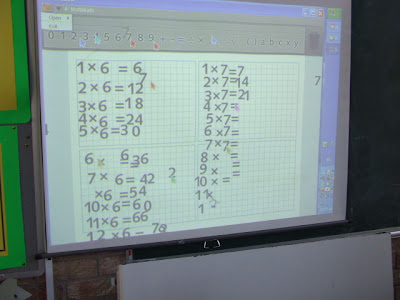 Open
Exit
0 1 2 3 4 5 6 7 8 9 + - = ÷ × ( ) a b c x y
7
1 × 6 = 6
7
2 × 6 = 12
3 × 6 = 18
4 × 6 = 24
5 × 6 = 30
6 × 6 = 36
7 × 6 = 42
2
× 6 = 54
10 × 6 = 60
11 × 6 = 66
12 × 6 = 72
1 × 7 = 7
2 × 7 = 14
3 × 7 = 21
4 × 7 =
5 × 7 =
6 × 7 =
7 × 7 =
8 × =
9 × =
10 × =
11 ×
1
7